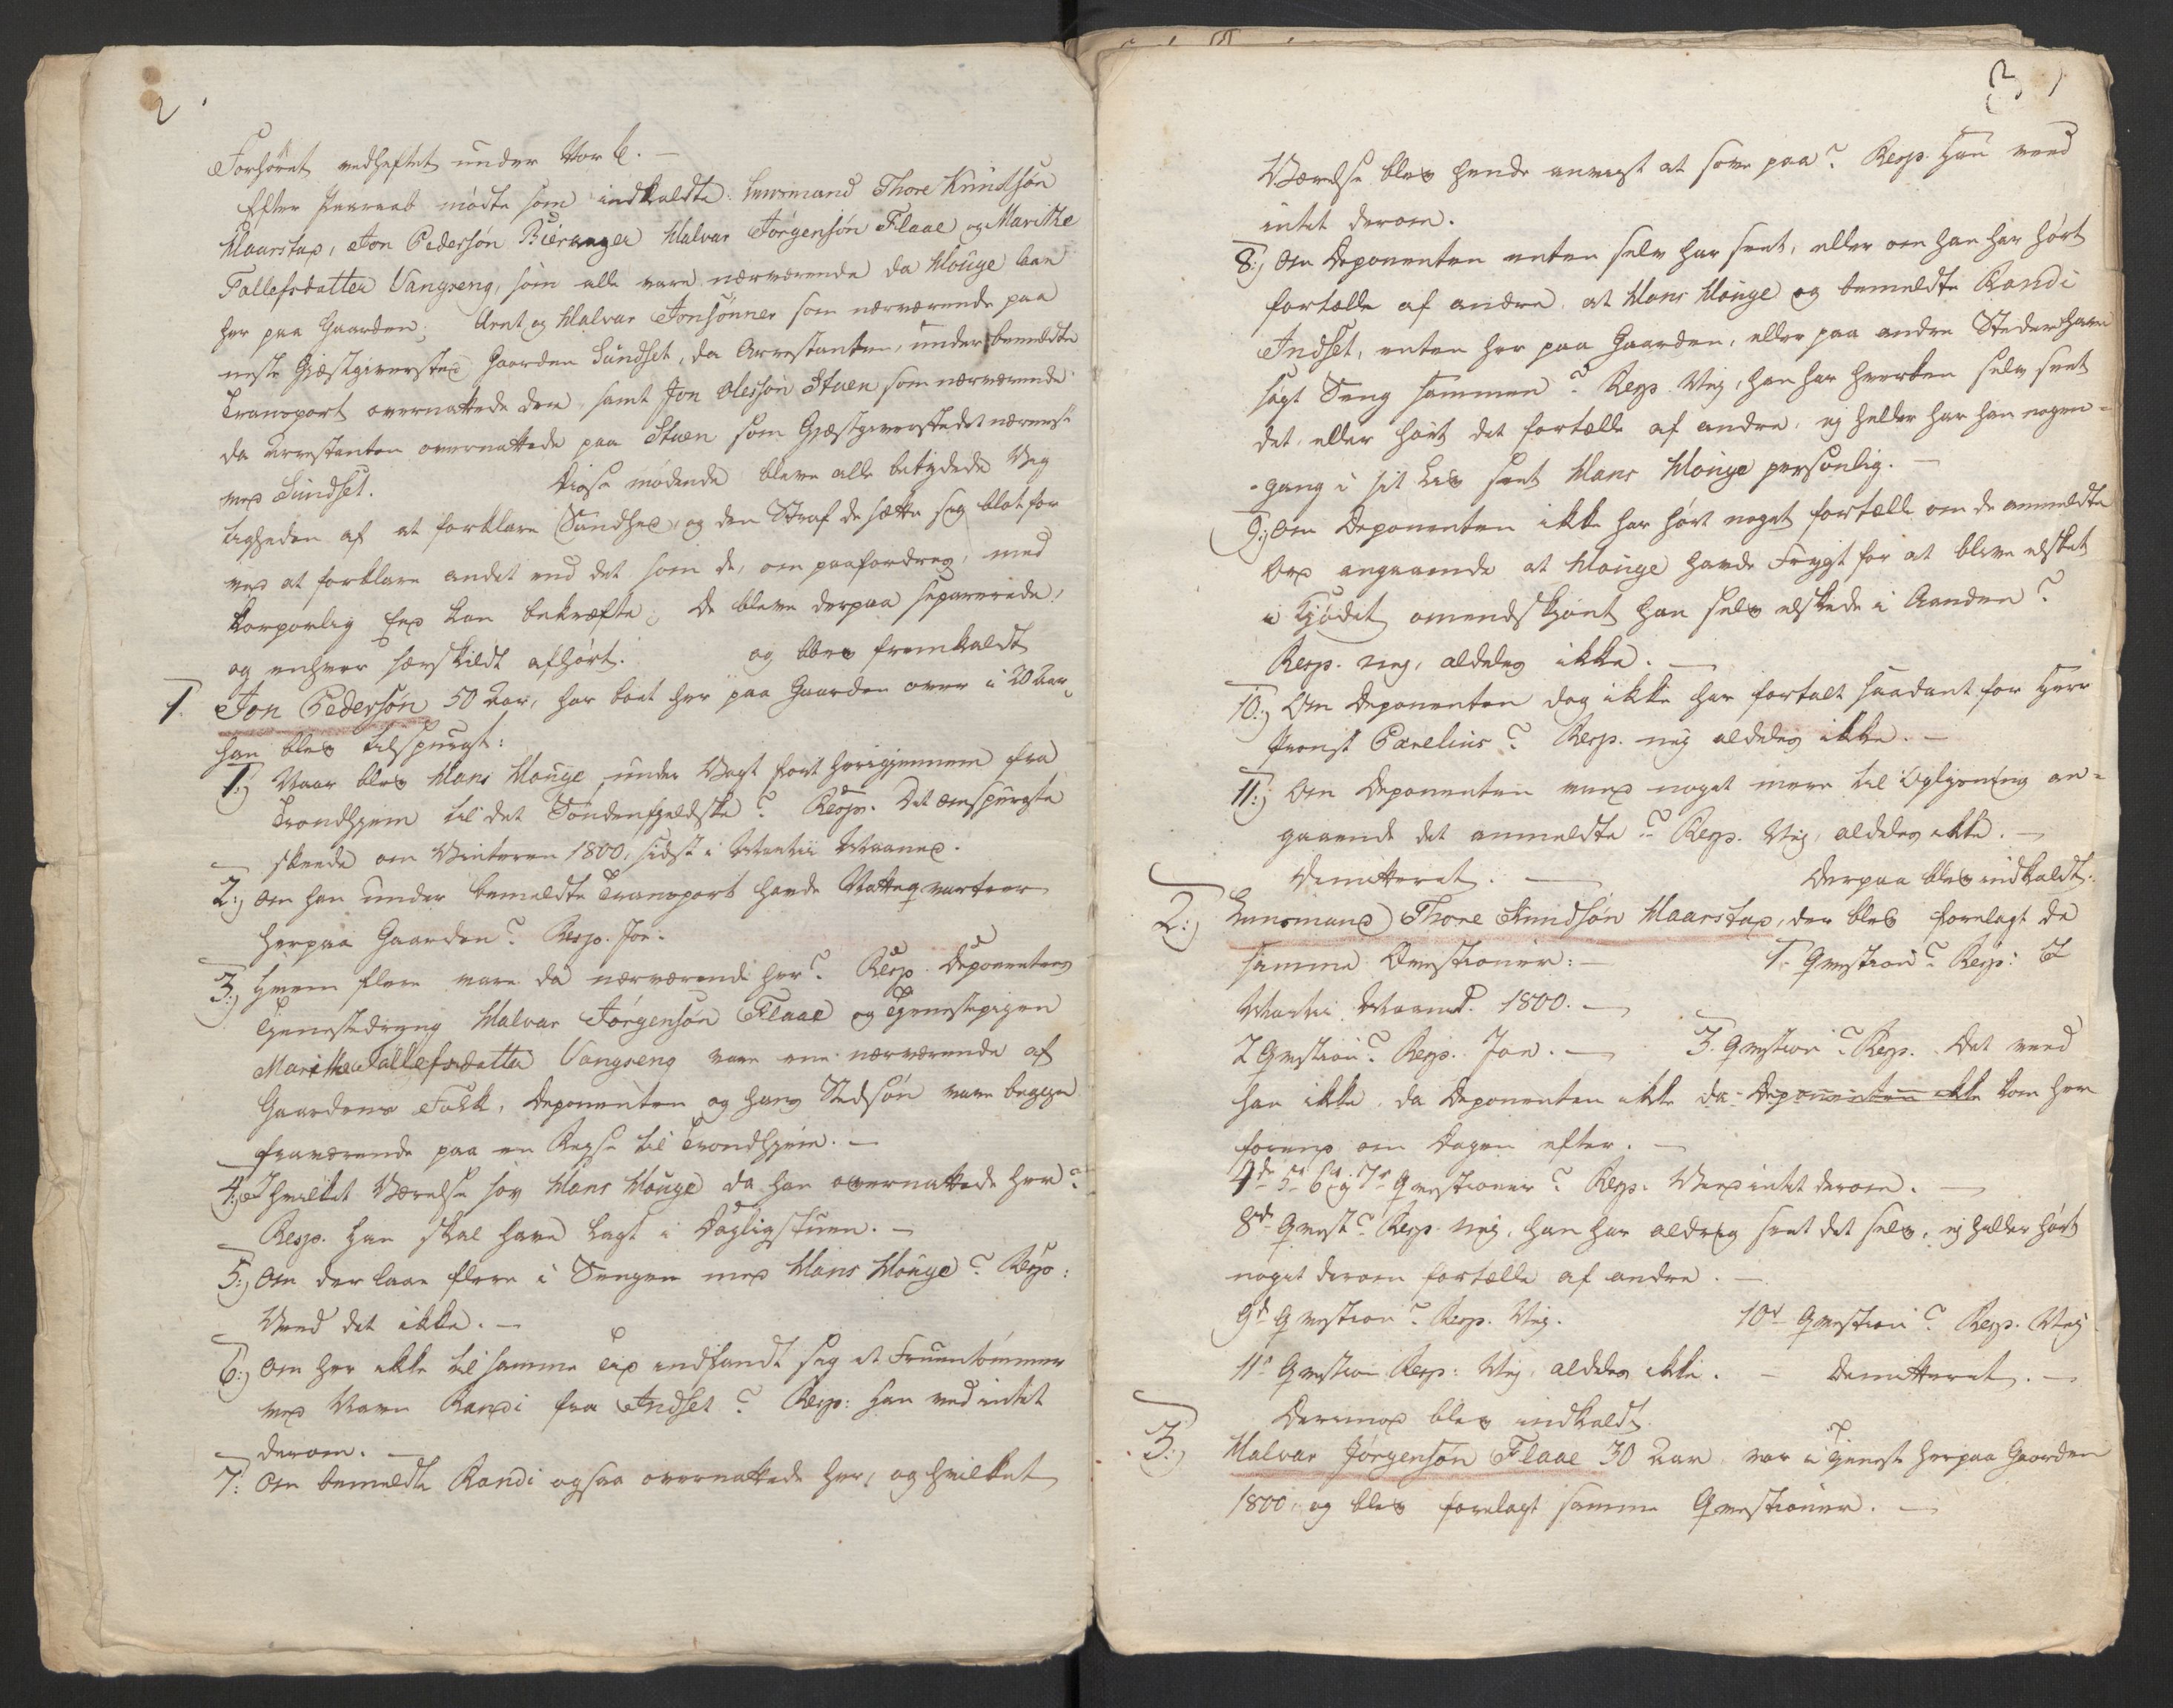 2
Forhøret vedheftet under Nor 6. –
Efter Paaraab mødte som indkaldte: Lensmand Thore Knudsøn
Haarstad, Jon Pedersøn Bieranger Halvar Jørgensøn Flaae og Marithe
Tollefsdatter Vangseng, som alle vare nærværende da Houge laae
her paa Gaarden; Arnt og Halvar Jonsønner som nærværende paa
neste Gjæstgiversted Gaarden Sundset, da Arrestanten, under bemeldte
Transport overnattede der, samt Jon Olessøn Stuen som nærværende
da Arrestanten overnattede paa Stuen som Gjæstgiverstedet nærmest
ved Sundset. Disse mødende bleve alle betydede Vig
tigheden af at forklare Sandhed, og den Straf de satte sig blot for
ved at forklare andet end det som de, om paafordres, med
korporlig Eed kan bekræfte; De bleve derpaa separerede,
og enhver særskildt afhørt. og blev fremkaldt
1. Jon Pedersøn 50 Aar, har boet her paa Gaarden over i 20 Aar,
han blev tilspurgt:
1:) Naar blev Hans Houge under Vagt ført herigjennem fra
Trondhjem til det Søndenfjeldske? Resp. Det omspurgte
skeede om Vinteren 1800, sidst i Martii Maaned.
2:) Om han under bemeldte Transport havde Natteqvarteer
herpaa Gaarden? Resp. Jo.
3:) Hvem flere vare da nærværende her? Resp. Deponentens
Tjenestedreng Halvar Jørgensøn Flaae og Tjenestepigen
Marithe Tollefsdatter Vangseng vare ene nærværende af
Gaardens Folk, Deponenten og hans Stedsøn vare begge
fraværende paa en Reyse til Trondhjem. –
4:) I hvilket Værelse sov Hans Houge da han overnattede her?
Resp. Han skal have lagt i Dagligstuen. –
5:) Om der laae flere i Sengen med Hans Houge? Resp:
Veed det ikke. –
6:) Om her ikke til samme Tid indfandt sig et Fruentømmer
ved Navn Randi fra Indset? Resp: Han ved intet
derom. –
7: Om bemeldte Randi ogsaa overnattede her, og hvilket
3
Værelse blev hende anviist at sove paa? Resp. Han veed
intet derom.
8:) Om Deponenten enten selv har seet, eller om han har hørt
fortælle af andre, at Hans Houge og bemeldte Randi
Indset, enten her paa Gaarden, eller paa andre Steder have
søgt Seng sammen? Resp. Nej, han har hverken selv seet
det, eller hørt det fortælle af andre, ej heller har han nogen-
-gang i sit Liv seet Hans Houge personlig. –
9:) Om Deponenten ikke har hørt noget fortælle om de anmeldte
Ord angaaende at Houge havde Frygt for at blive elsket
i Kjødet omendskjønt han selv elskede i Aanden?
Resp. nej, aldeles ikke. –
10:) Om Deponenten dog ikke har fortalt saadant for Herr
Provst Parelius? Resp. nej aldeles ikke. –
11:) Om Deponenten veed noget mere til Oplysning an-
gaaende det anmeldte? Resp. Nej, aldeles ikke. –
Demitteret. – Derpaa blev indkaldt:
2:) Lensmand Thore Knudsøn Haarstad, der blev forelagt de
samme Qvestioner: – 1. Qvestion? Resp: I
Martii Maaned 1800. –
2 Qvestion? Resp. Joe. – 3. Qvestion? Resp. Det veed
han ikke, da Deponenten ikke da Deponenten ikke kom her
førend om Dagen efter. –
4de 5te 6te og 7de Qvestioner? Resp. Veed intet derom. –
8de Qvest? Resp. nej, han har aldrig seet det selv, ej heller hørt
noget derom fortælle af andre. –
9de Qvestion? Resp. Nej. 10de Qvestion? Resp. Nej
11te Qvestion Resp: Nej, aldeles ikke. – Demitteret. –
Dernæst blev indkaldt
3:) Halvar Jørgensøn Flaae 30 Aar var i Tjeneste herpaa Gaarden
1800, og blev forelagt samme Qvestioner. –